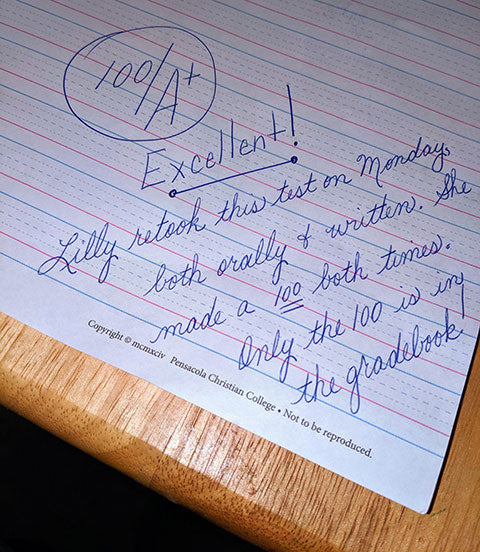 100/A+
Excellent!
Lilly retook this test on Monday,
both orally & written. She
made a 100 both times.
Only the 100 is in
the gradebook.
Copyright © mcmxciv Pensacola Christian College • Not to be reproduced.